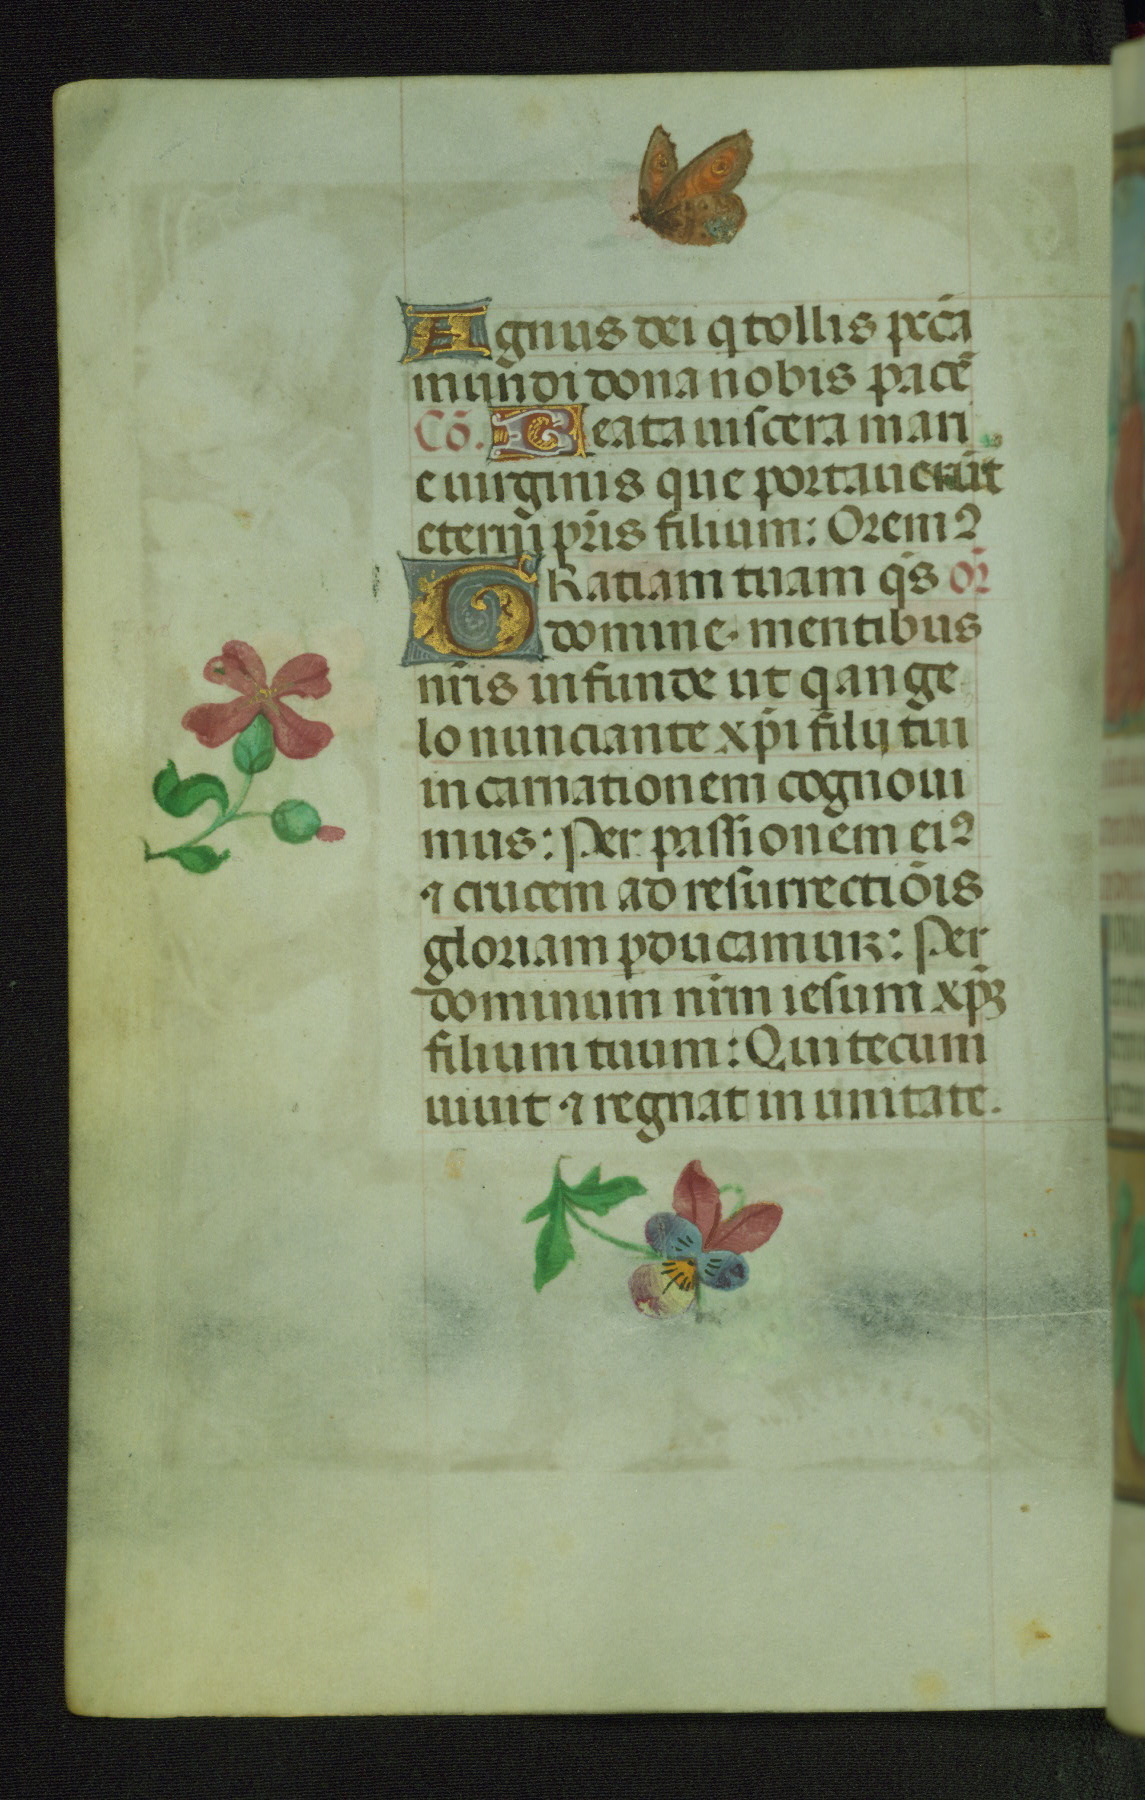 Agnus dei q tollis pctā
mundi dona nobis pacē
Cō. Beata uiscera mari
e uirginis que portauerūt
eterni pr̄is filium: Orem⁹
GRatiam tuam q̄s or̄
domine. mentibus
nr̄is infunde ut q ange
lo nunciante xp̄i filij tui
incarnationem cogноui
mus: Per passionem ei⁹
⁊ crucem ad resurrectiōis
gloriam pducamur: Per
dominum nr̄m iesum xp̄ꝫ
filium tuum: Qui tecum
uiuit ⁊ regnat in unitate.